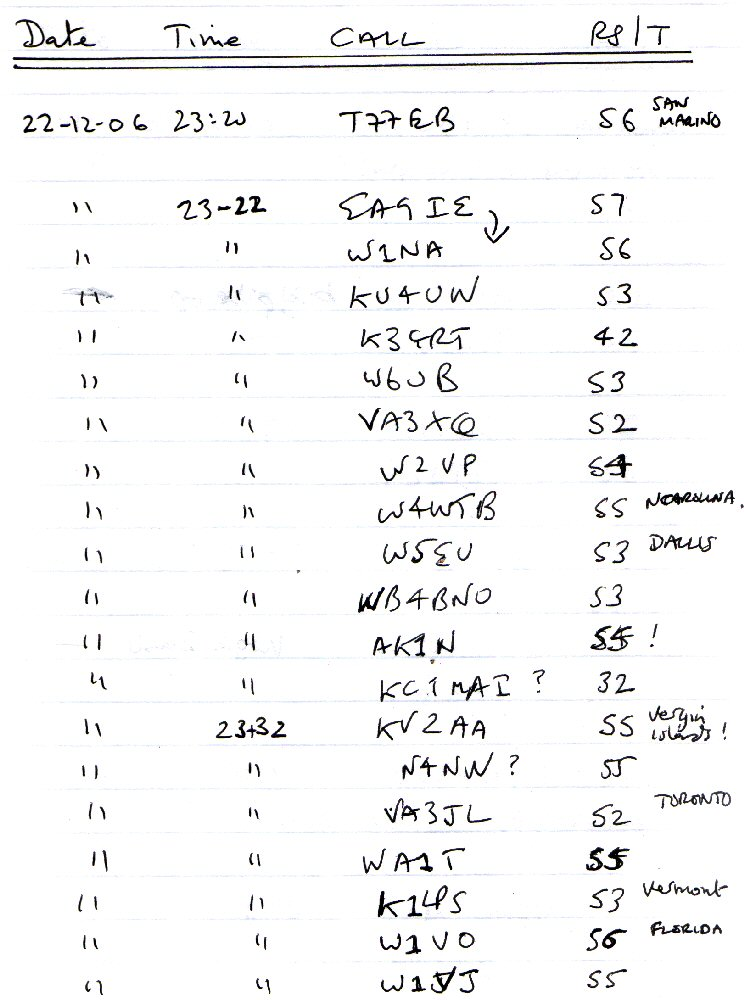 Date Time CALL RS/T
22-12-06 23:20 T77EB 56 SAN MARINO
" 23-22 EA9IE 57
" " W1NA 56
" " KU4UW 53
" " K3GRT 42
" " W6UB 53
" " VA3XQ 52
" " W2VP 54
" " W4WTB 55 NCAROLINA.
" " W5EU 53 DALLS
" " WB4BNO 53
" " AK1N 55 !
" " KC1MAI ? 32
" 23:32 KV2AA 55 Vergin islands!
" " N4NW ? 55
" " VA3JL 52 TORONTO
" " WA1T 55
" " 53 Vermont
" " W1VO 56 FLORIDA
" " 55